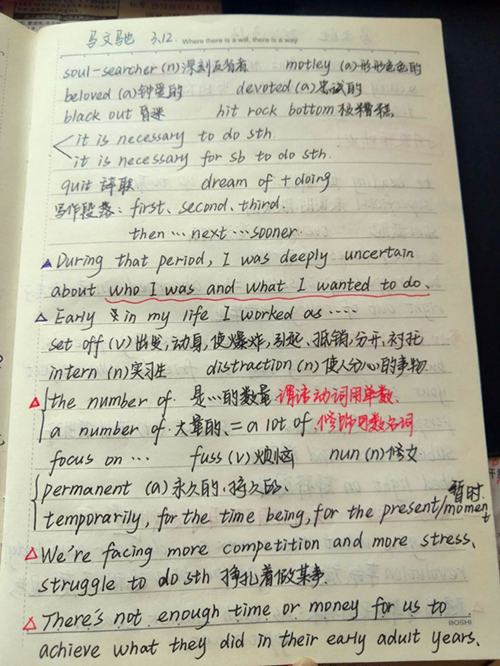 马文驰 3.12. Where there is a will, there is a way
soul-searcher (n) 深刻反省者 motley (a) 形形色色的
beloved (a) 钟爱的 devoted (a) 忠诚的
black out 昏迷 hit rock bottom 极糟糕,
it is necessary to do sth
it is necessary for sb to do sth.
quit 辞职 dream of + doing
写作段落: first, second, third.
then … next … sooner.
During that period, I was deeply uncertain
about who I was and what I wanted to do.
Early in my life I worked as ....
set off (v) 出发, 动身, 使爆炸, 引起, 抵销, 分开, 衬托
intern (n) 实习生 distraction (n) 使人分心的事物
the number of. 是…的数量 谓语动词用单数.
a number of. 大量的, = a lot of. 修饰可数名词
focus on … fuss (v) 烦恼 nun (n) 修女
permanent (a) 永久的. 持久的.
temporarily, for the time being, for the present/moment 暂时.
We're facing more competition and more stress.
struggle to do sth 挣扎着做某事.
There's not enough time or money for us to
achieve what they did in their early adult years.
BOSHI